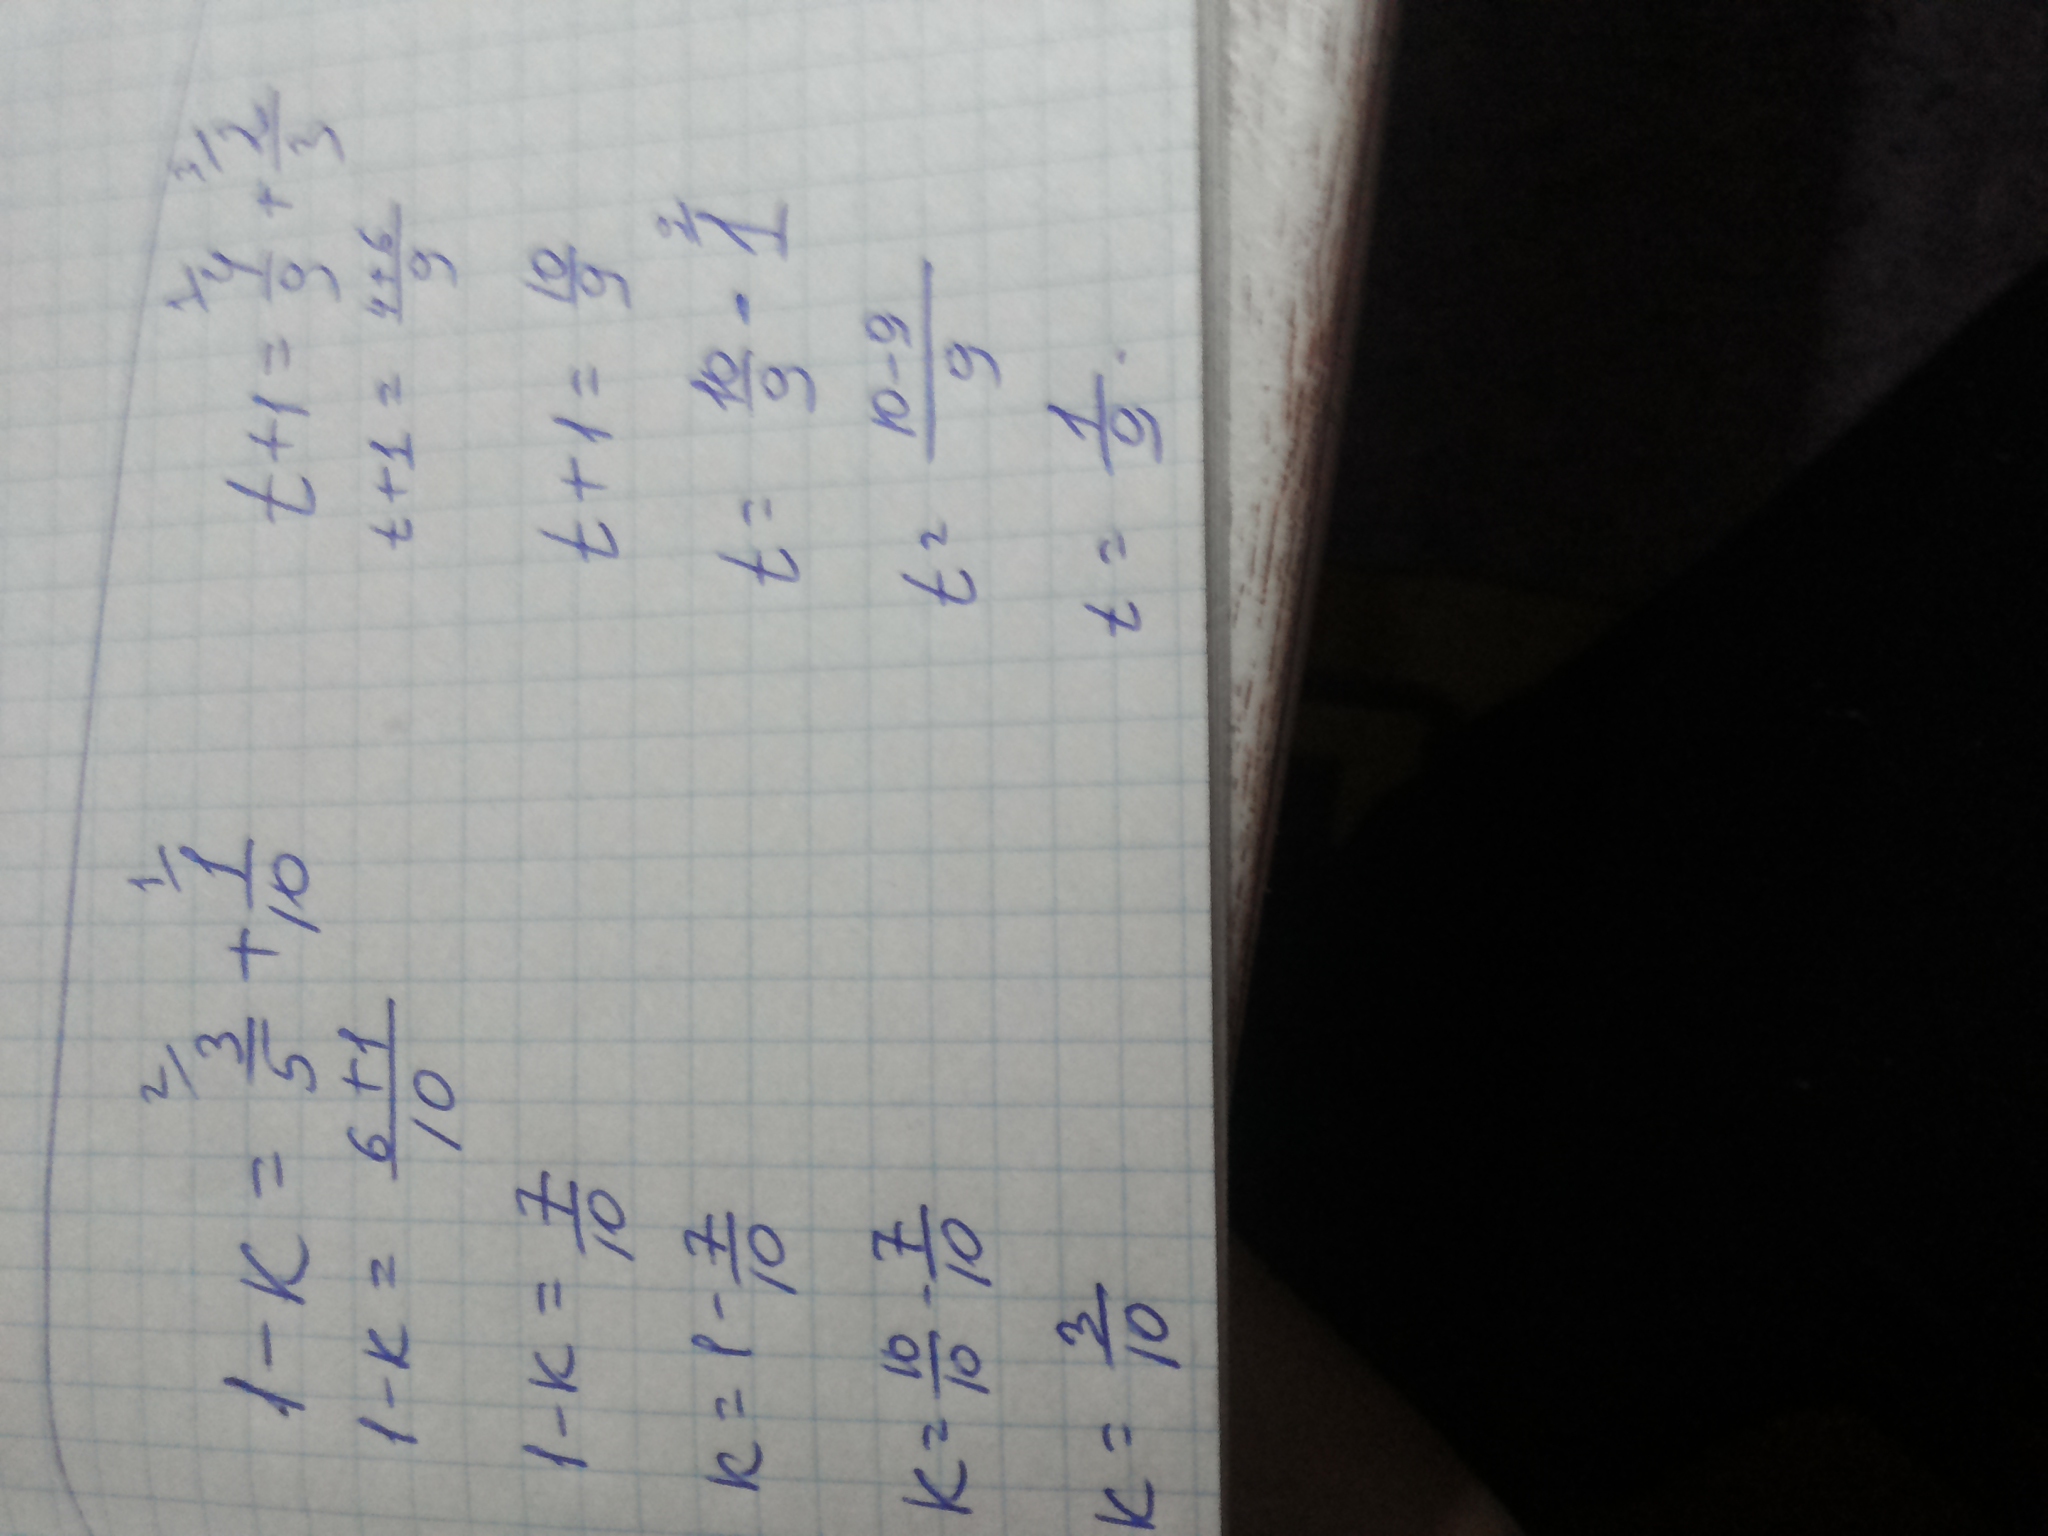 1 - K = ²⁄ 3/5 + ¹⁄ 1/10
1 - K = (6+1)/10
1 - K = 7/10
K = 1 - 7/10
K = 10/10 - 7/10
K = 3/10
t + 1 = ¹⁄ 4/9 + ³⁄ 2/3
t + 1 = (4+6)/9
t + 1 = 10/9
t = 10/9 - 1
t = (10-9)/9
t = 1/9.